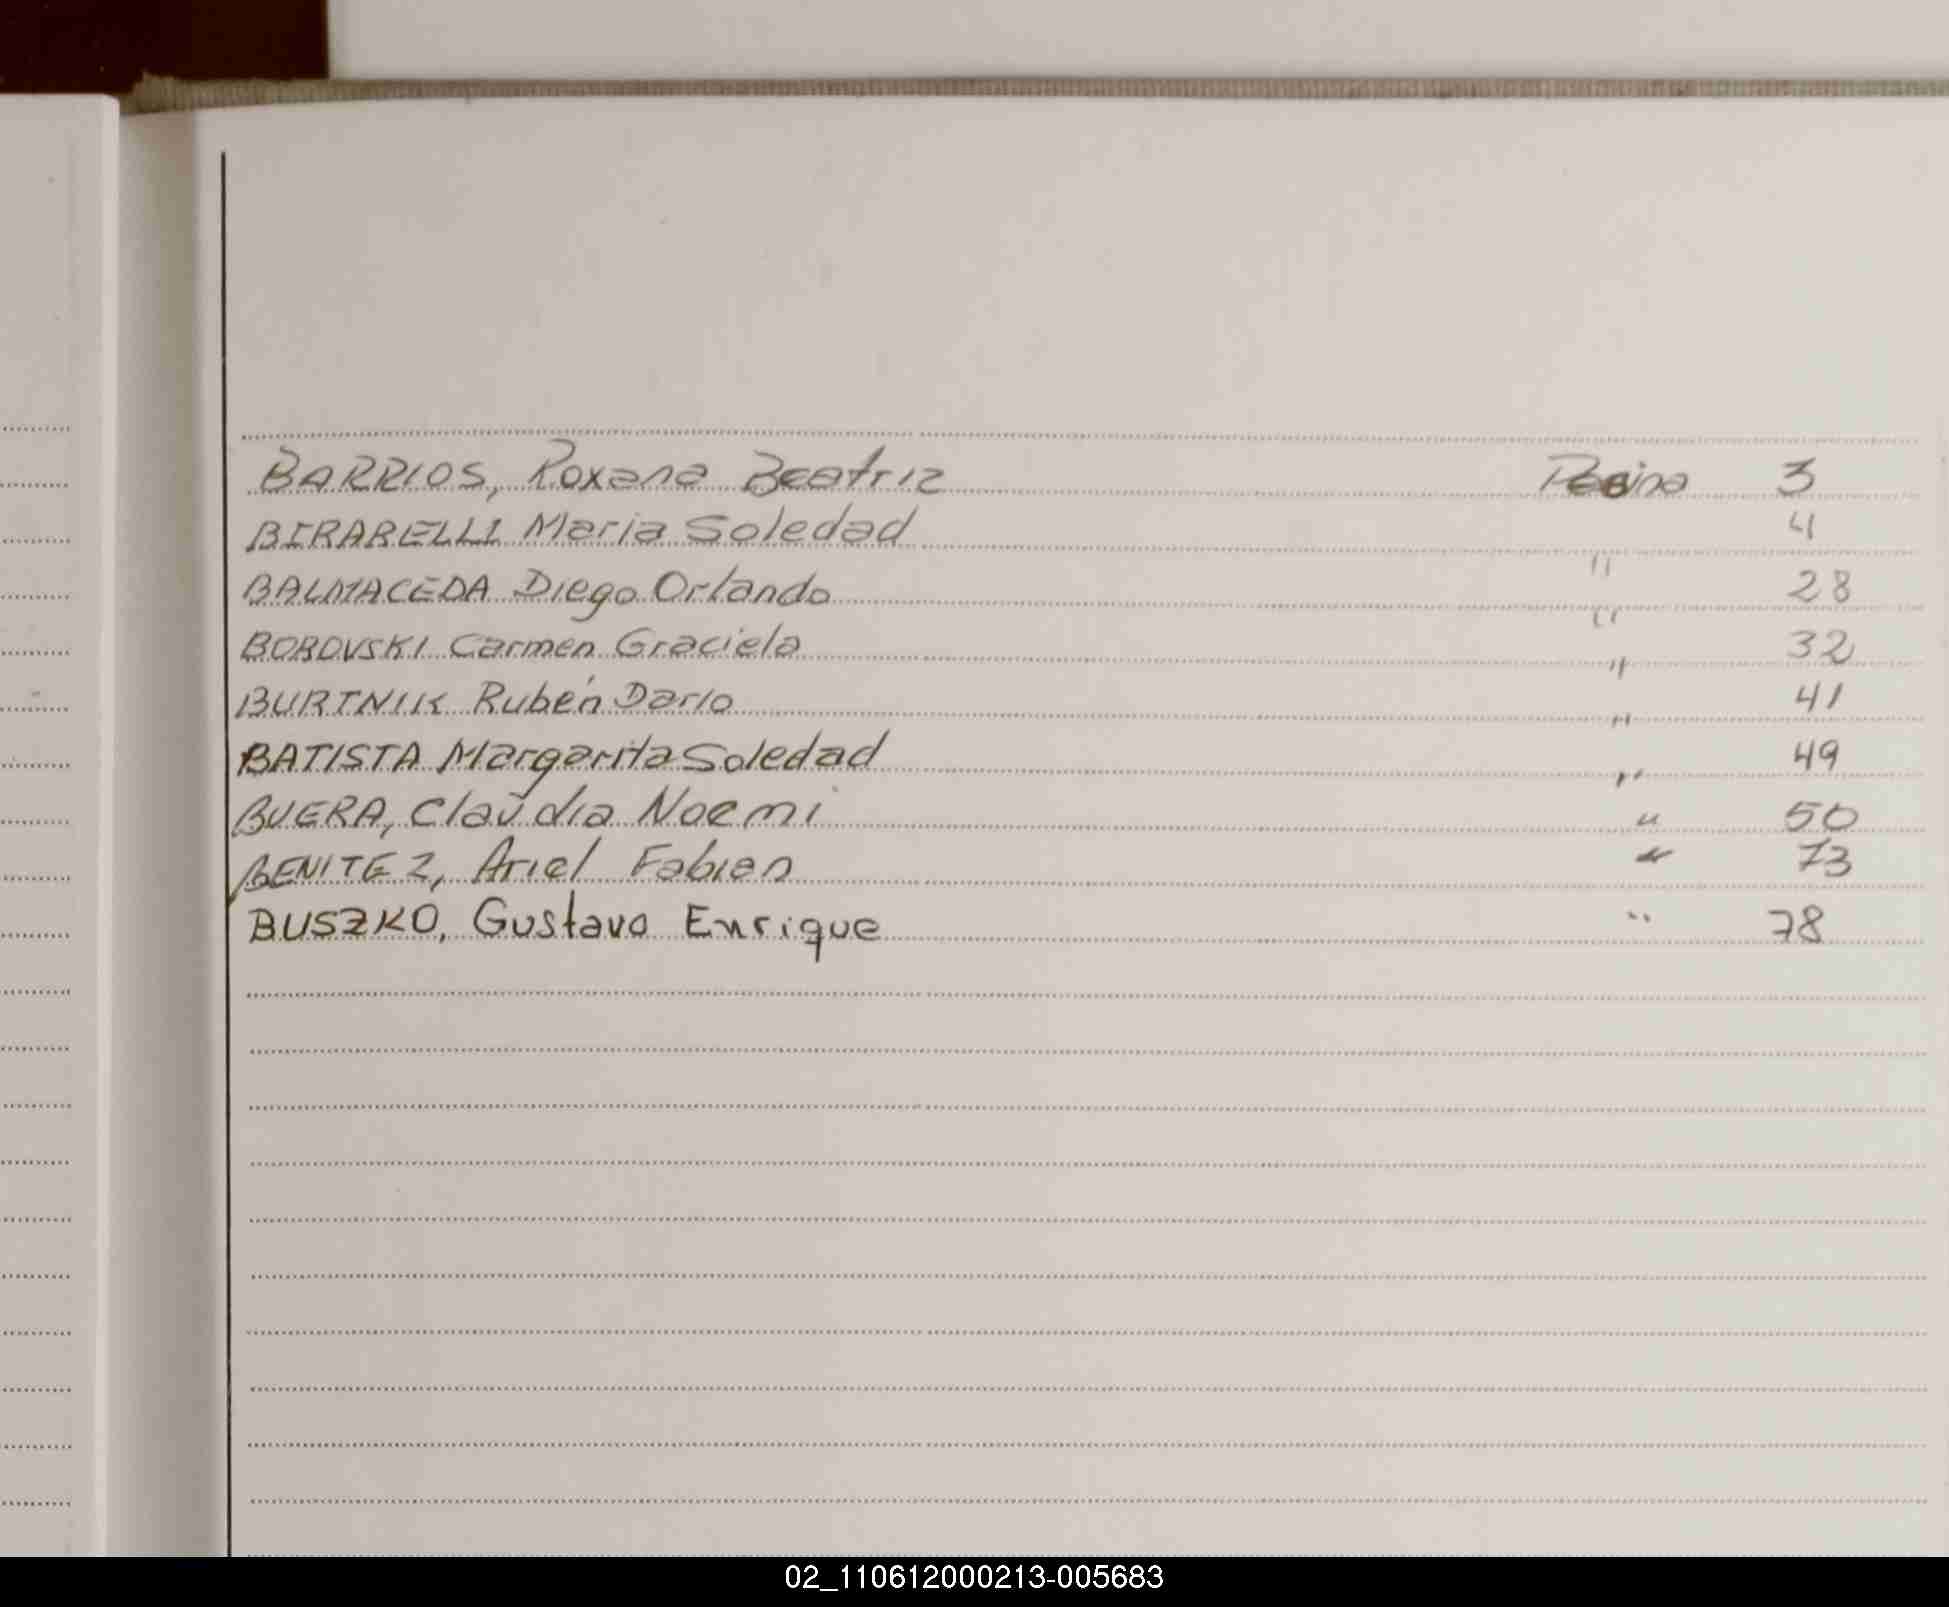 BARRIOS, Roxana Beatriz Pagina 3
BIRARELLI Maria Soledad 4
BALMACEDA Diego Orlando " 28
BOROVSKI Carmen Graciela " 32
BURTNIK Rubén Dario " 41
BATISTA Margarita Soledad " 49
BUERA, Claudia Noemi " 50
BENITEZ, Ariel Fabian " 73
BUSZKO, Gustavo Enrique " 78
02_110612000213-005683